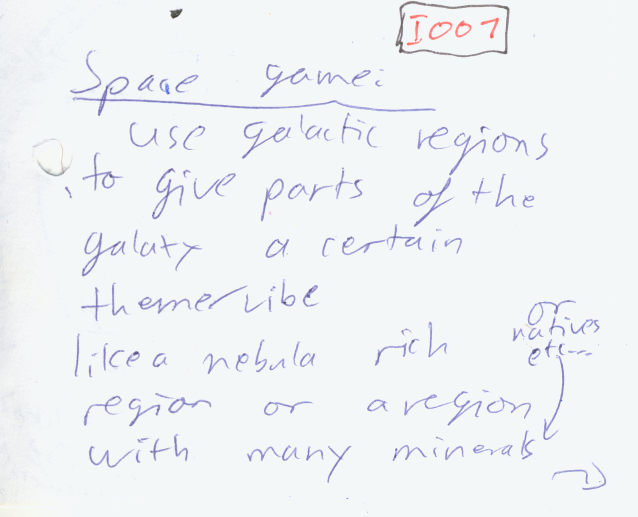 I001
Space game:
use galactic regions
to give parts of the
galaxy a certain
theme/vibe
like a nebula rich
region or a region
with many minerals
or
natives
etc...